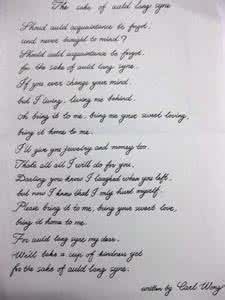 The sake of auld lang syne
Should auld acquaintance be forgot,
and never brought to mind?
Should auld acquaintance be forgot,
for the sake of auld lang syne.
If you ever change your mind,
but I living, living me behind.
Oh bring it to me, bring me your sweet loving,
bring it home to me.
I'll give you jewelry and money too.
Thats all all I will do for you,
Darling you know I laughed when you left,
but now I know that I only hurt myself.
Please bring it to me, bring your sweet love,
bring it home to me.
For auld lang syne my dear.
We'll take a cup of kindness yet
for the sake of auld lang syne.
written by Carl Wong